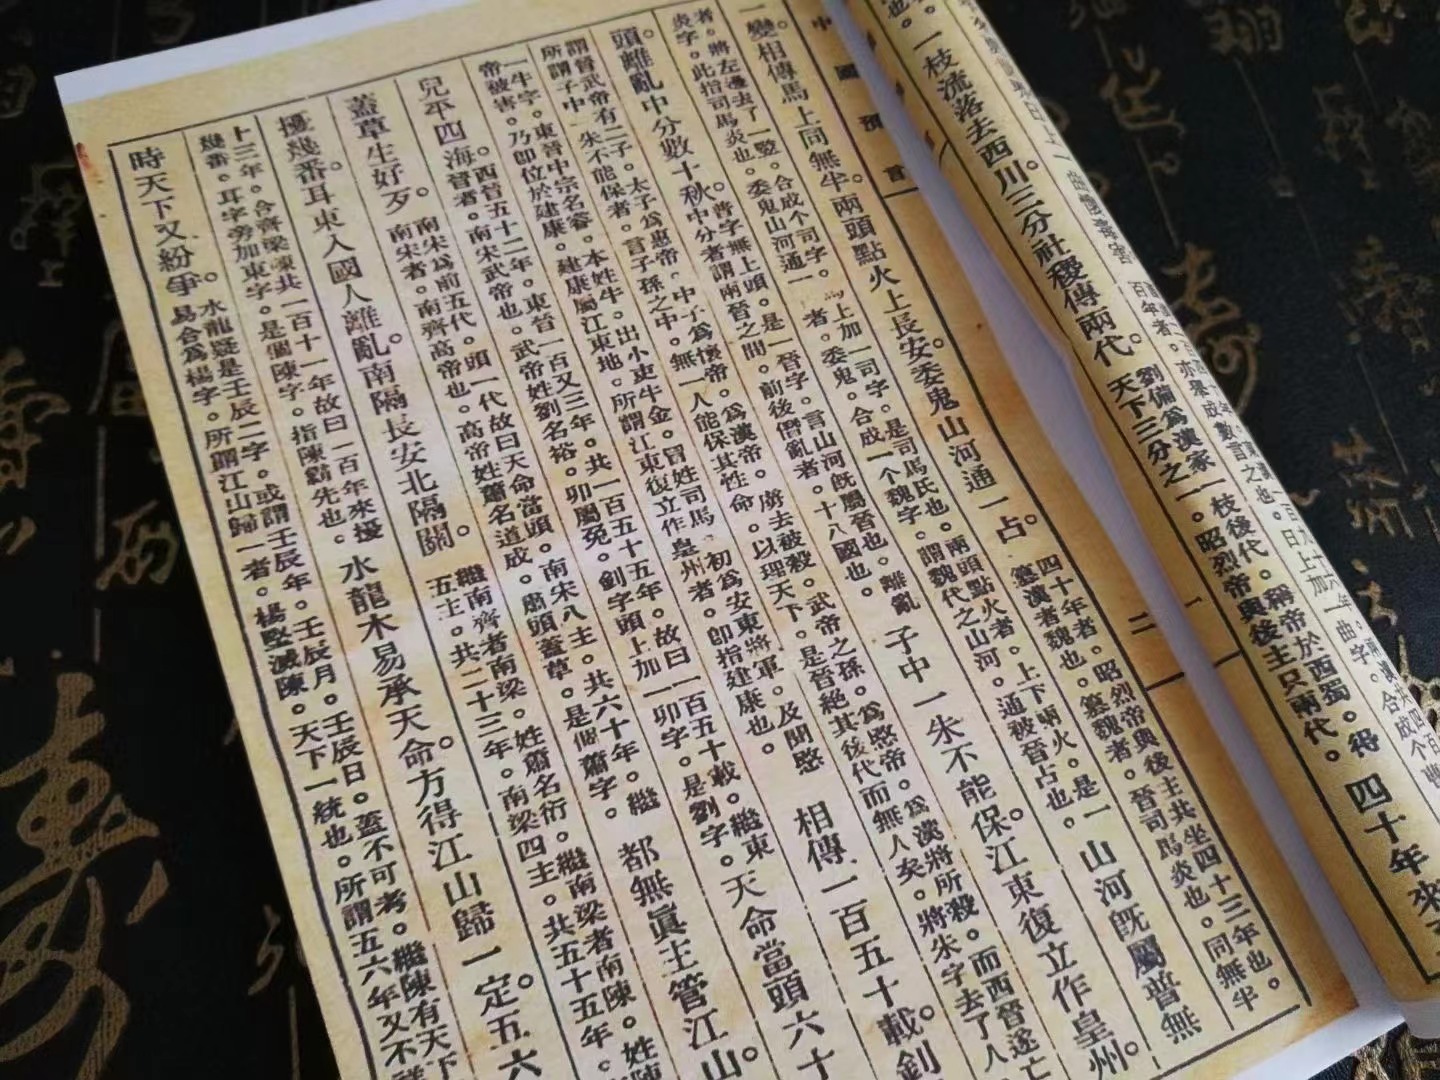 也。一枝流落去西川三分社稷傳兩代。
劉備爲漢家一枝後代。稱帝於西蜀。得
天下三分之一。昭烈帝與後主只兩代。
四十年來
中國預言
二
一變相傳馬上同無半。兩頭點火上長安。委鬼山河通一占。
四十年者。昭烈帝與後主共坐四十三年也。同無半
篡漢者魏也。篡魏者。晉司馬炎也。
者。將左邊去了一豎。合成个司字。馬上加一司字。是司馬氏也。兩頭點火者。上下兩火。是一
炎字。此指司馬炎也。委鬼山河通一 者。委鬼。合成一个魏字。謂魏代之山河。通被晉占也。
山河旣屬普無
頭。離亂中分數十秋。
普字無上頭。是一晉字。言山河旣屬晉也。離亂
中分者謂兩晉之間。前後僭亂者。十八國也。
子中一朱不能保。江東復立作皇州。
謂晉武帝有二子。太子爲惠帝。中子爲懷帝。爲漢帝。虜去被殺。武帝之孫。爲愍帝。爲漢將所殺。而西晉遂亡
所謂子中一朱不能保者。言子孫之中。無一人能保其性命。以理天下。是晉絕其後代而無人矣。將朱字去了人
一牛字。東晉中宗名睿。本姓牛。出小吏牛金。冒姓司馬。初爲安東將軍。及閔愍
帝被害。乃卽位於建康。建康屬江東地。所謂江東復立作皇州者。卽指建康也。
相傳一百五十載。釗
兒平四海。
西晉五十二年。東晉一百又三年。共一百五十五年。故曰一百五十載。繼東
晉者。南宋武帝也。武帝姓劉名裕。卯屬兔。釗字頭上加一卯字。是劉字。
天命當頭六十
蓋草生好歹。
南宋爲前五代。頭一代故曰天命當頭。南宋八主。共六十年。繼
南宋者。南齊高帝也。高帝姓蕭名道成。肅頭蓋草。是個蕭字。
都無眞主管江山。
擾幾番耳東入國人離亂。南隔長安北隔關。
繼南齊者南梁。姓蕭名衍。繼南梁者南陳。姓陳
五主。共二十三年。南梁四主。共五十五年。
十三年。合齊梁陳共一百十一年故曰一百年來擾
幾番。耳字旁加東字。是個陳字。指陳霸先也。
水龍木易承天命。方得江山歸一定。五六
時天下又紛爭。
水龍疑是壬辰二字。或謂壬辰年。壬辰月。壬辰日。蓋不可考。繼陳有天下
易合爲楊字。所謂江山歸一者。楊堅滅陳。天下一統也。所謂五六年又不詳